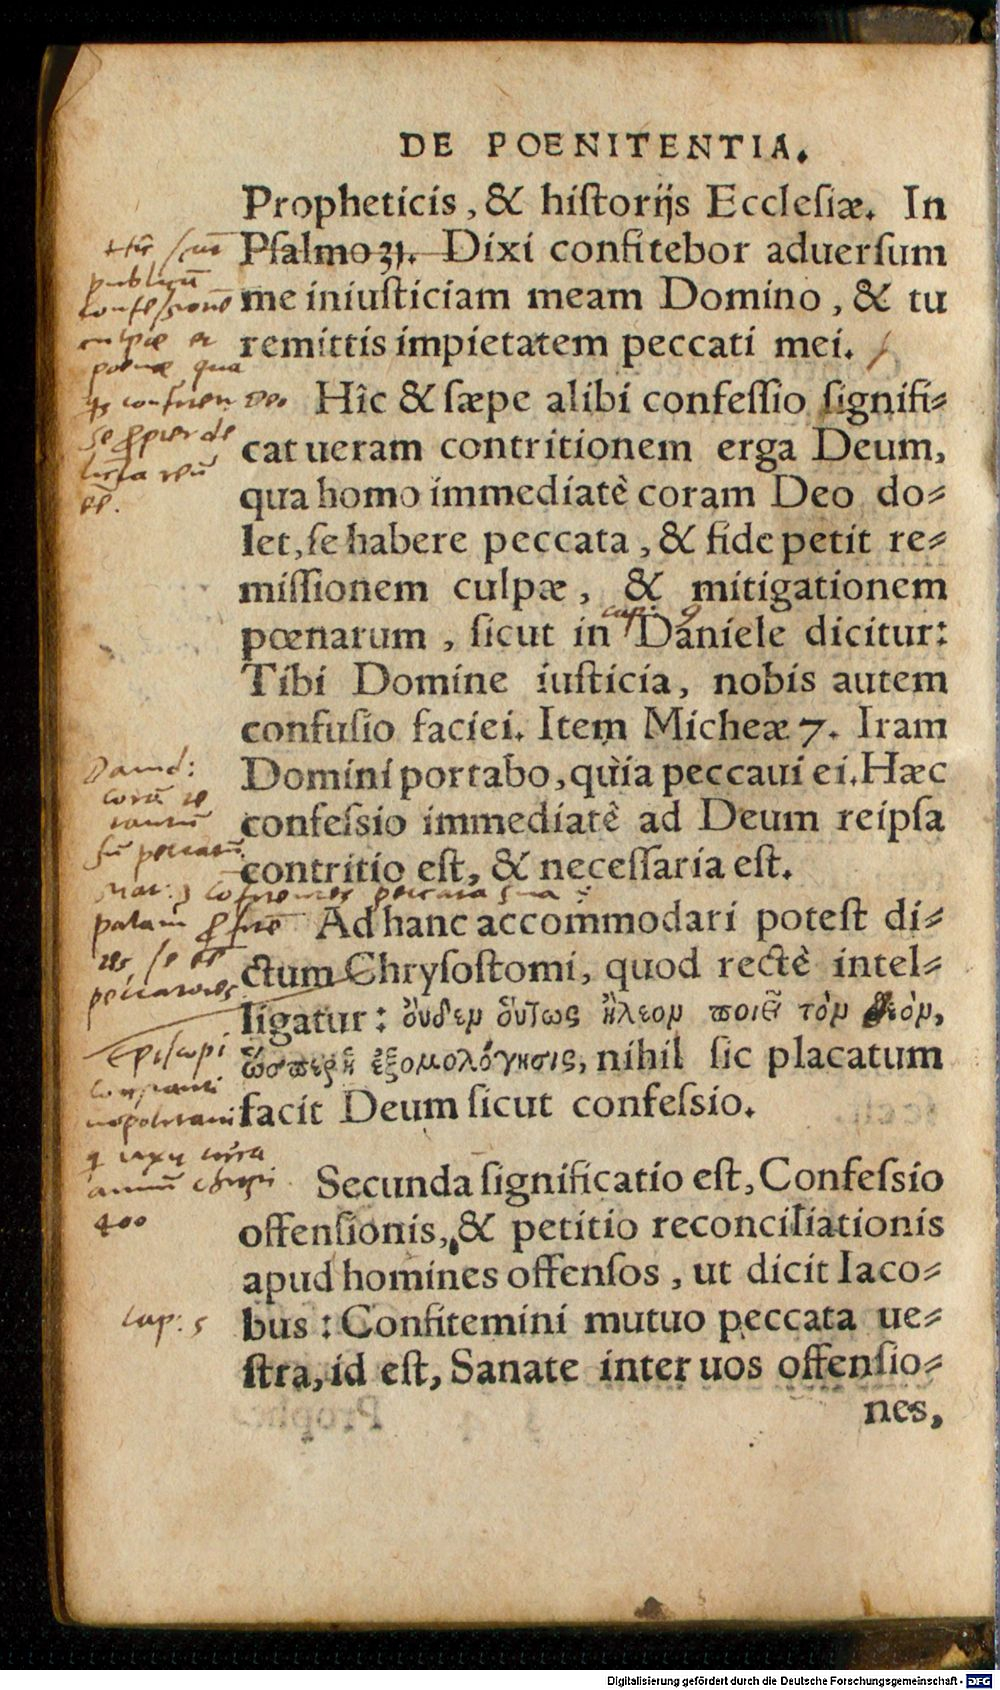 DE POENITENTIA.
Propheticis, & historijs Ecclesiæ. In
Psalmo 31. Dixi confitebor aduersum
me iniusticiam meam Domino, & tu
remittis impietatem peccati mei.
Hîc & sæpe alibi confessio signifi-
cat ueram contritionem erga Deum,
qua homo immediatè coram Deo do-
let, se habere peccata, & fide petit re-
missionem culpæ, & mitigationem
cap: 9
pœnarum, sicut in Daniele dicitur:
Tibi Domine iusticia, nobis autem
confusio faciei. Item Micheæ 7. Iram
Domini portabo, quia peccaui ei. Hæc
confessio immediatè ad Deum reipsa
contritio est, & necessaria est.
Ad hanc accommodari potest di-
ctum Chrysostomi, quod rectè intel-
ligatur: ὀυδὲν ὅυτως ἵλεον ποιεῖ τὸν θεὸν,
ὥσπερ ἡ ἐξομολόγησις, nihil sic placatum
facit Deum sicut confessio.
Secunda significatio est, Confessio
offensionis, & petitio reconciliationis
apud homines offensos, ut dicit Iaco-
bus: Confitemini mutuo peccata ue-
stra, id est, Sanate inter uos offensio-
nes,
publicū
confessionē
culpæ et
pœnæ qua
Dauid:
peccata sua
palam
peccatores
Episcopi
Constanti
nopolitani
400
cap: 5
Digitalisierung gefördert durch die Deutsche Forschungsgemeinschaft - DFG